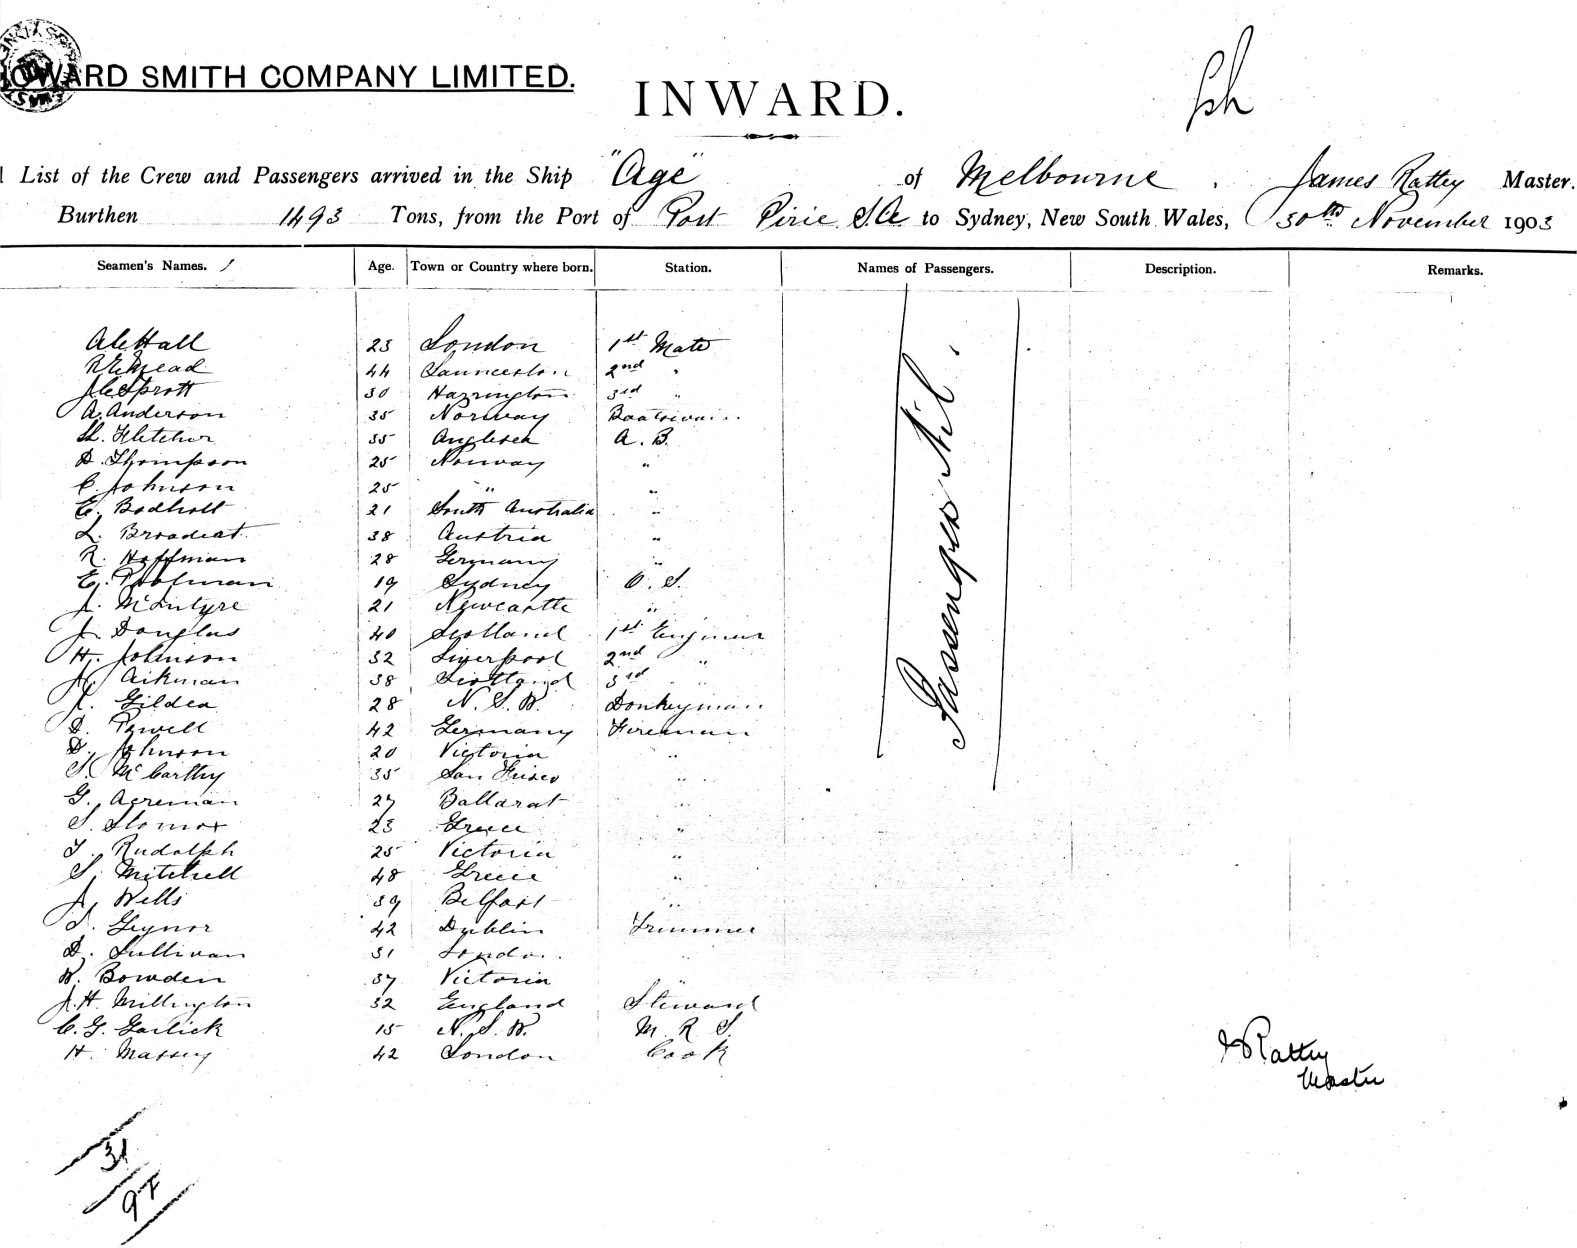 HOWARD SMITH COMPANY LIMITED.
INWARD.
A List of the Crew and Passengers arrived in the Ship "Age" of Melbourne, James Rattey Master.
Burthen 1493 Tons, from the Port of Port Pirie S.A. to Sydney, New South Wales, 30th November 1903
Seamen's Names. Age. Town or Country where born. Station. Names of Passengers. Description. Remarks.
Passengers Nil.
Hall 23 London 1st Mate
Mead 44 Launceston 2nd "
J.C. Sprott 30 Harrington 3rd "
A. Anderson 35 Norway Boatswain
Fletcher 35 Anglesea A.B.
D. Thompson 25 Norway "
C. Johnson 25 " "
E. Bodholt 21 South Australia "
L. 38 Austria "
R. Hoffman 28 Germany "
E. 19 Sydney O.S.
J. McIntyre 21 Newcastle "
J. Douglas 40 Scotland 1st Engineer
H. Johnson 32 Liverpool 2nd "
Aikman 38 Scotland 3rd "
Gildea 28 N.S.W. Donkeyman
D. Powell 42 Germany Fireman
D. Johnson 20 Victoria "
McCarthy 35 San Frisco "
G. Acreman 27 Ballarat "
S. Slomox 23 Greece "
Rudolph 25 Victoria "
S. Mitchell 48 Greece "
J. Wells 39 Belfast "
Geynor 42 Dublin Trimmer
D. Sullivan 31 London "
W. Bowden 37 Victoria "
J.H. Millington 32 England Steward
C.G. Garlick 15 N.S.W. M.R.S.
H. Massey 42 London Cook
Rattey
Master
31
97